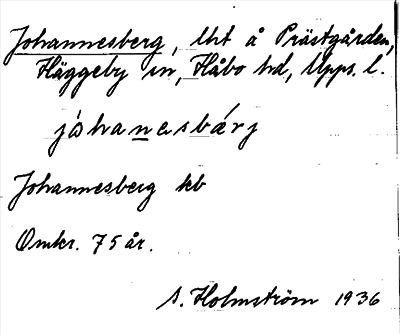 Johannesberg, lht å Prästgården,
Häggeby sn, Håbo hd, Upps. l.
jåhanesbærj
Johannesberg kb
Omkr. 75 år.
S. Holmström 1936